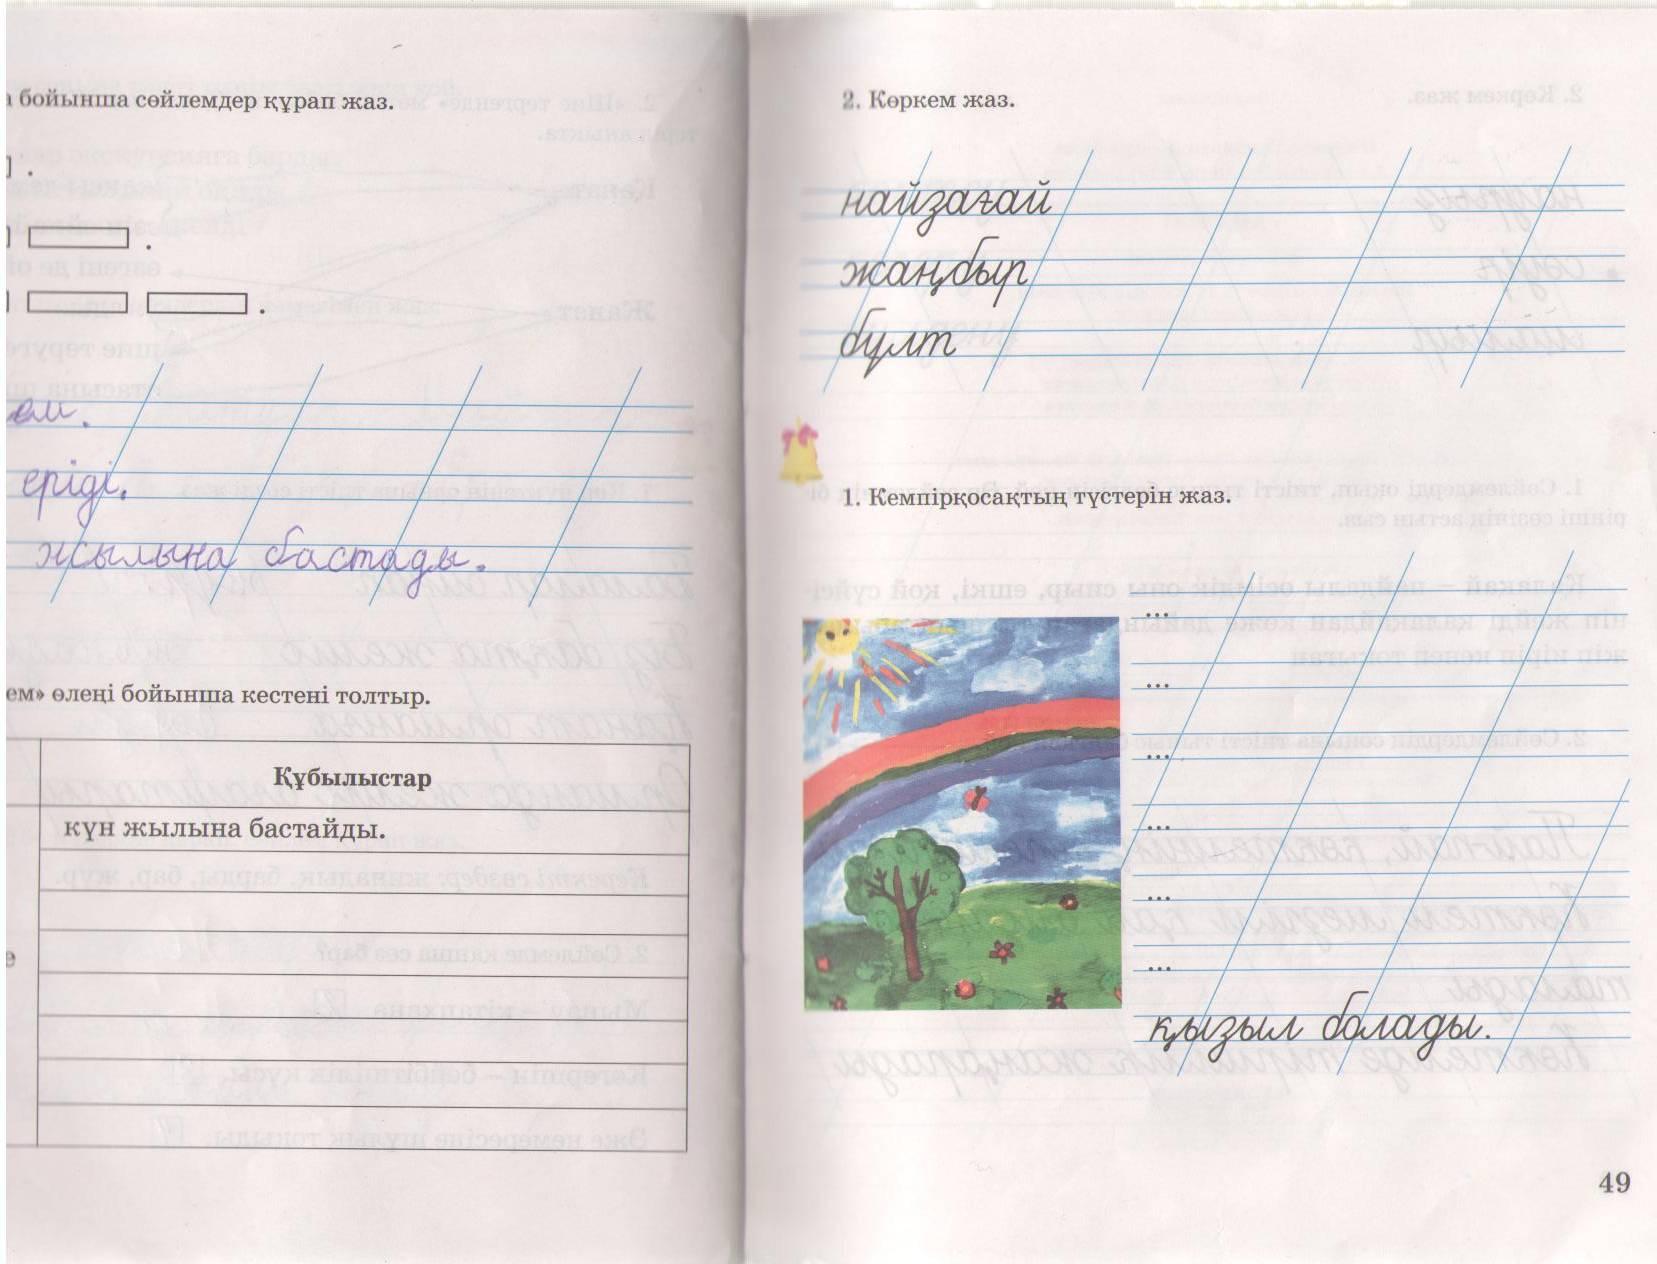 бойынша сөйлемдер құрап жаз.
.
.
.
ем.
еріді.
жылына бастады.
ем» өлеңі бойынша кестені толтыр.
Құбылыстар
күн жылына бастайды.
е
2. Көркем жаз.
найзағай
жаңбыр
бұлт
1. Кемпірқосақтың түстерін жаз.
...
...
...
...
...
...
қызыл болады.
49